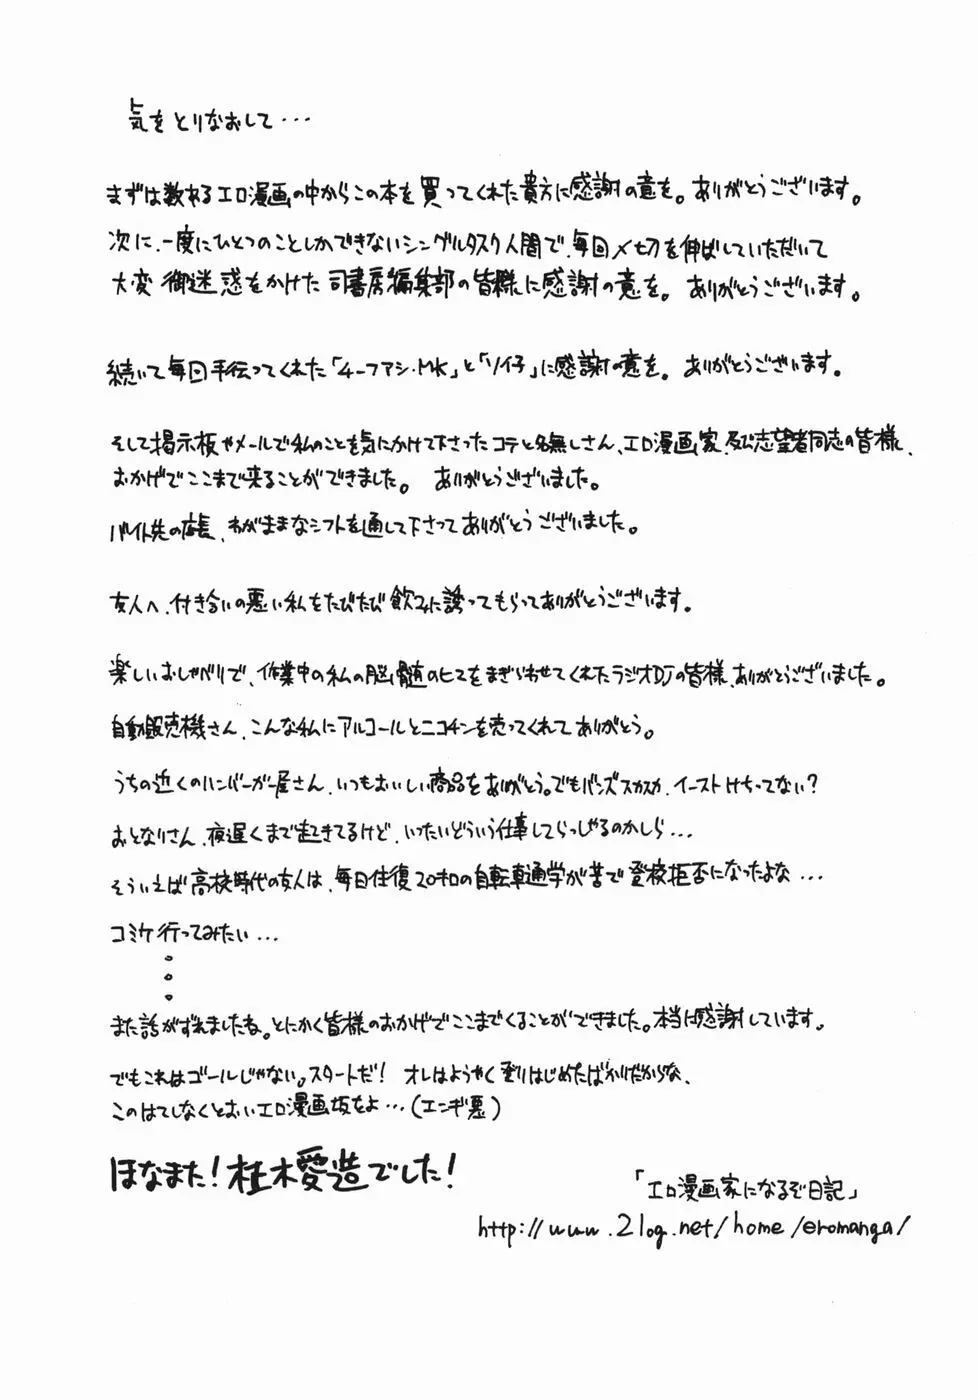 気をとりなおして・・・
まずは数あるエロ漫画の中からこの本を買ってくれた貴方に感謝の意を。ありがとうございます。
次に、一度にひとつのことしかできないシングルタスク人間で、毎回〆切を伸ばしていただいて
大変御迷惑をかけた司書房編集部の皆様に感謝の意を。ありがとうございます。
続いて毎回手伝ってくれた「4-ファシ・MK」と「ソ仔」に感謝の意を。ありがとうございます。
そして掲示板やメールで私のことを気にかけて下さったコテと名無しさん、エロ漫画家、及び志望者同志の皆様、
おかげでここまで来ることができました。ありがとうございました。
バイト先の店長、わがままなシフトを通して下さってありがとうございました。
友人へ、付き合いの悪い私をたびたび飲みに誘ってもらってありがとうございます。
楽しいおしゃべりで、作業中の私の脳髄のヒマをまぎらわせてくれたラジオDJの皆様、ありがとうございました。
自動販売機さん、こんな私にアルコールとニコチンを売ってくれてありがとう。
うちの近くのハンバーガー屋さん、いつもおいしい商品をありがとう。でもバンズスカスカ、イーストけちってない？
おとなりさん、夜遅くまで起きてるけど、いったいどういう仕事してらっしゃるのかしら・・・
そういえば高校時代の友人は、毎日往復20キロの自転車通学が苦で登校拒否になったよな・・・
コミケ行ってみたい・・・
。
。
。
また話がずれましたね。とにかく皆様のおかげでここまでくることができました。本当に感謝しています。
でもこれはゴールじゃない。スタートだ！ オレはようやく登りはじめたばかりだからな、
このはてしなくとおいエロ漫画坂をよ・・・（エンギ悪）
ほなまた！桂木愛造でした！
「エロ漫画家になるぞ日記」
http://www.2log.net/home/eromanga/